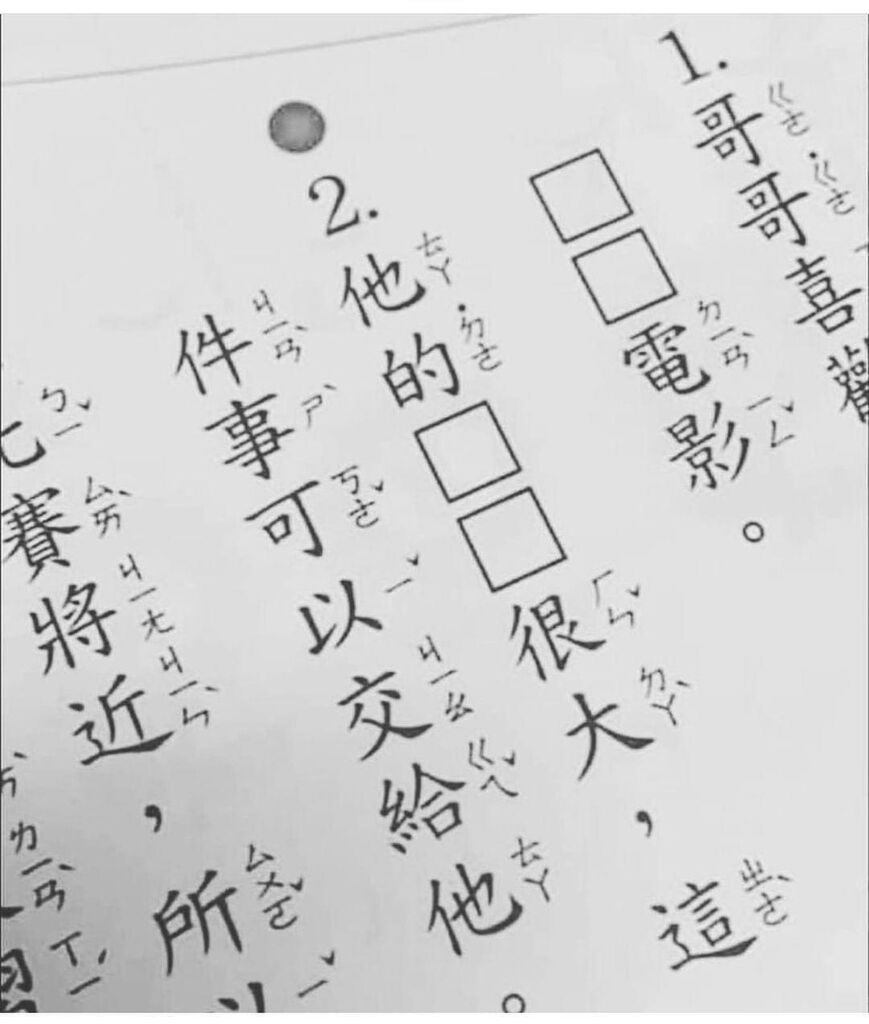 1.哥哥喜歡
□□電影。
2.他的□□很大，這
件事可以交給他。
比賽將近，所以
習